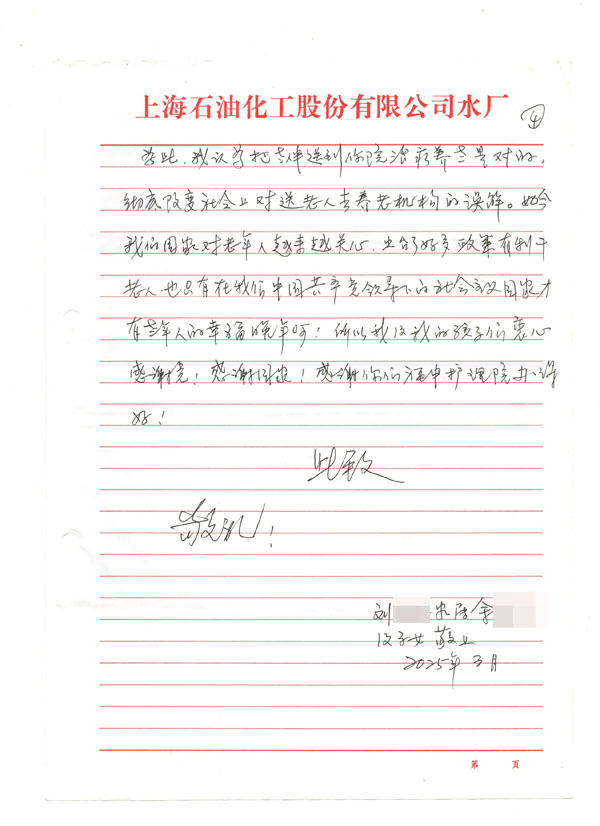 上海石油化工股份有限公司水厂
④
至此,我认为把老伴送到你院治疗养老是对的,
彻底改变社会上对送老人去养老机构的误解。如今
我们国家对老年人越来越关心,出台了好多政策有利于
老人也只有在我们中国共产党领导下的社会主义国家才
有老年人的幸福晚年呵!所以我及我的孩子们衷心
感谢党!感谢国家!感谢你们申护理院办得
好!
此致
敬礼!
刘 家属余
及子女 敬上
2025年3月
第 页